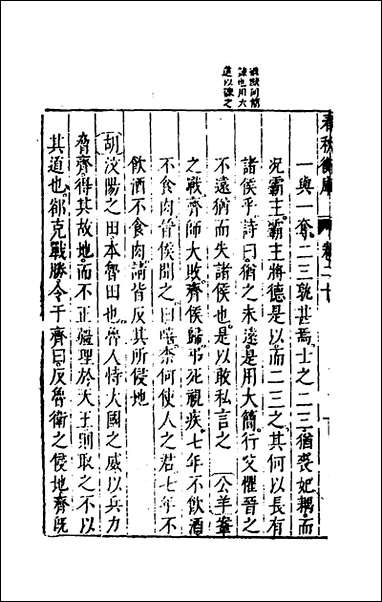 猶猷同簡
諫也用大
道以諫之
春秋衡庫 卷二十
一與一奪二三孰甚焉士之二三猶喪妃耦而
况霸主霸主將德是以而二三之其何以長有
諸侯乎詩曰猶之未遠是用大簡行父懼晉之
不遠猶而失諸侯也是以敢私言之 公羊鞌
之戰齊師大敗齊侯歸弔死視疾七年不飲酒
不食肉晉侯聞之曰嘻柰何使人之君七年不
飲酒不食肉請皆反其所侵地
胡 汶陽之田本魯田也魯人恃大國之威以兵力
脅齊得其故地而不正疆理於天王則取之不以
其道也郤克戰勝令于齊曰反魯衛之侵地齊既